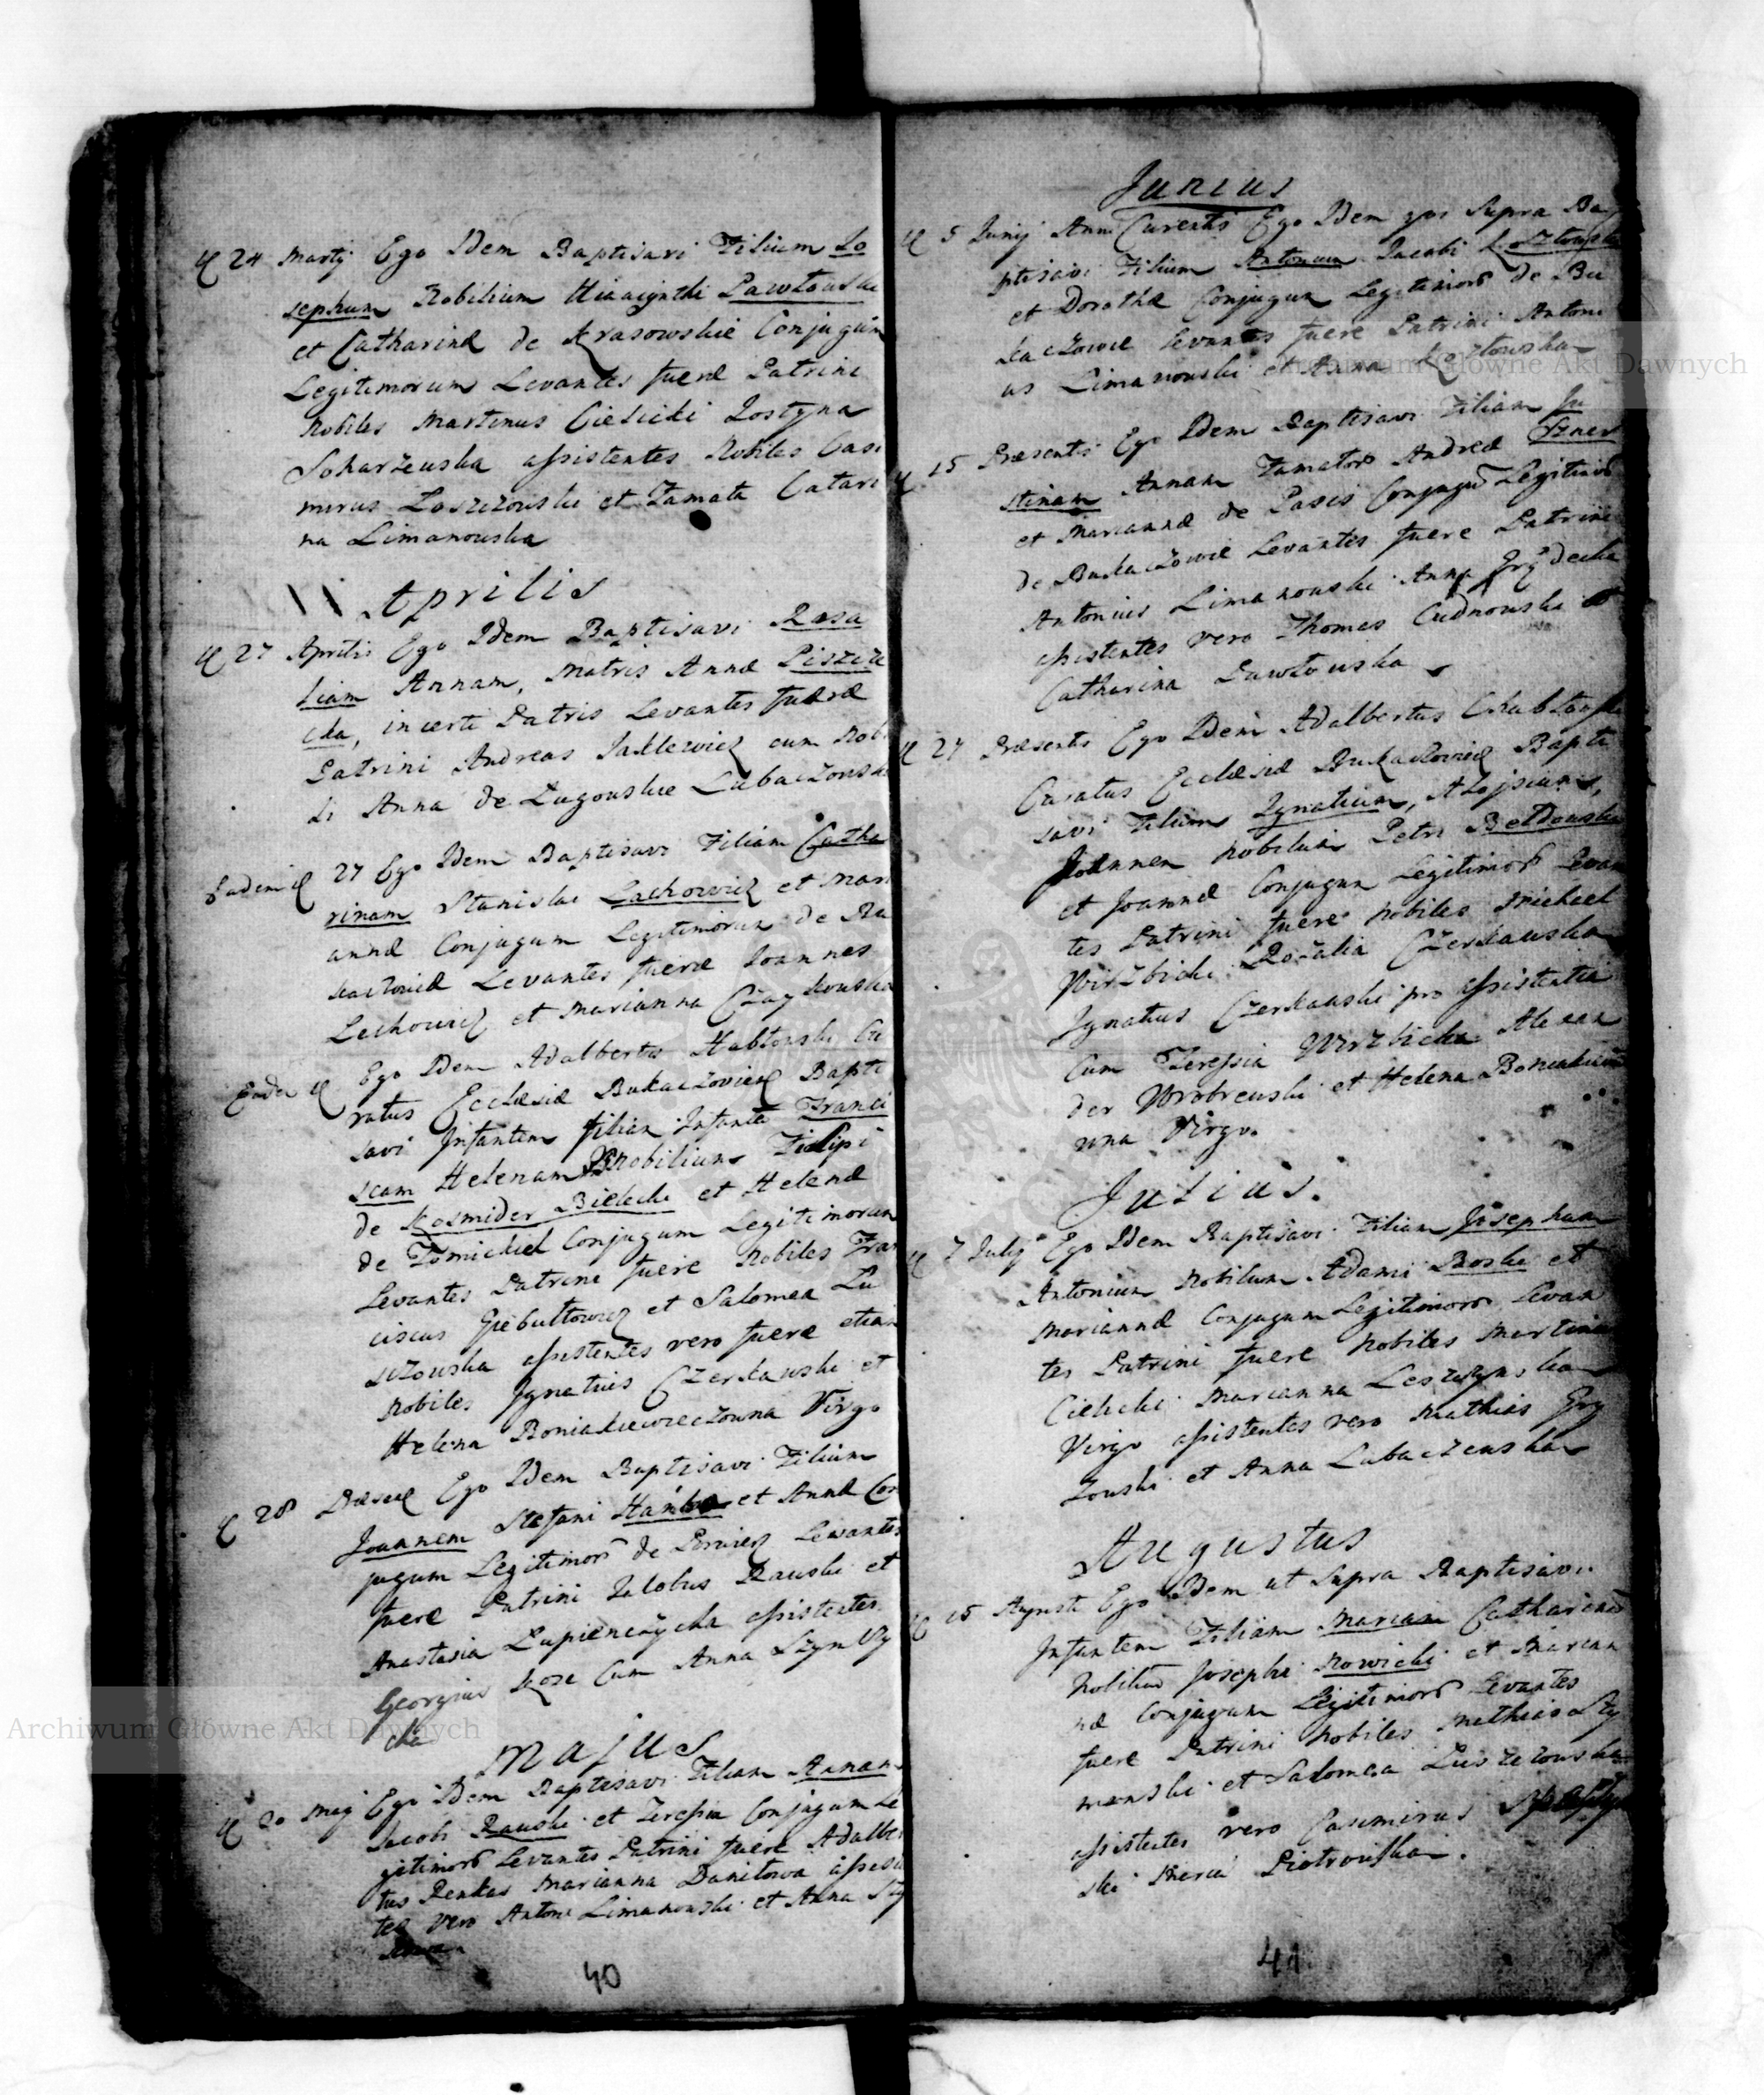 24 Martij Ego Idem Baptisavi Filium Jo
sephum Nobilium Hiacijnthi Pawłouski
et Catharinæ de Krasowskie Conjugum
Legitimorum Levantes fueræ Patrini
Nobiles Martinus Cielicki Justyna
Skarzeuska assistentes Nobiles Casi
mirus Łoszczouski et Famata Catari
na Limanouska
Aprilis
27 Aprilis Ego Idem Baptisavi Rosa
liam Annam, Matris Annæ Piszcze
cka, incerti Patris Levantes fueræ
Patrini Andreas Jaklewicz cum Nobi
li Anna de Ługouskie Lubaczouska
Eadem 27 Ego Idem Baptisavi Filiam Catha
rinam Stanislai Lachowicz et Mari
annæ Conjugum Legitimorum de Bu
kaczowiec Levantes fueræ Joannes
Lechowicz et Marianna Czaykouska
Eadem Ego Idem Adalbertus Habłouski Cu
ratus Ecclesiæ Bukaczoviecz Bapti
savi Infantem filiam Infanta Franci
scam Helenam Nobilium Filipi
de Kosmider Bielecki et Helenæ
de Conjugum Legitimorum
Levantes Patrini fuere Nobiles Fran
ciscus Giebułtowicz et Salomea Lu
szczouska assistentes vero fueræ etiam
Nobiles Ignatius Czerkauski et
Helena Boniakiewieczouna Virgo
28 Ego Idem Baptisavi Filium
Joannem Stefani et Annæ Con
jugum Legitimor de Levantes
fueræ Patrini Jakobus Rauski et
Anastasia assistentes
Georgius Koza Cum Anna Szymczy
cka
Majus
20 Maij Ego Idem Baptisavi Filiam Annam
Jacobi Rauski et Teressia Conjugum Le
gitimor Levantes Patrini fueræ Adalber
tus Penkas Marianna Daniłowa assisten
tes vero Antoni Limanouski et Anna
40
Junius
5 Junij Anni Curentis Ego Idem qui Supra Ba
ptisavi Filium Antonium Jacobi
et Dorothæ Conjugum Legitimor de Bu
kaczowie Levantes fuere Patrini Antoni
us Limanouski et Anna Kozłouska
15 Præsentis Ego Idem Baptisavi Filiam Ju
stinam Annam Famator Andreæ
et Mariannæ de Pasis Conjugu Legitimor
de Bukaczowie Levantes fuere Patrini
Antonius Limanouski Anna Grydecka
assistentes vero Thomas Cudnouski et
Catharina Pawłouska
27 Præsentis Ego Idem Adalbertus Chabłouski
Curatus Ecclesiæ Bukaczoviecz Bapti
savi Filium Ignatium, Alojsium,
Joannem Nobilium Petri Bełdouski
et Joannæ Conjugum Legitimor Levan
tes Patrini fuere Nobiles Michael
Wirzbicki Rozalia Czerkauska
Ignatius Czerkauski pro assistentia
Cum Teressia Wirzbicka Alexan
der Wrobreuski et Helena Boniakiewi
una Virgo.
Julius.
7 Julij Ego Idem Baptisavi Filium Josephum
Antonium Nobilium Adami Boski et
Mariannæ Conjugum Legitimor Levan
tes Patrini fuere Nobiles Martinus
Cielecki Marianna Leszczynska
Virgo assistentes vero Mathias Gry
zouski et Anna Lubaczeuska
Augustus
15 Augusti Ego Idem ut Supra Baptisavi
Infantem Filiam Mariam Catharinam
Nobilium Josephi Nowicki et Marian
næ Conjugum Legitimor Levantes
fueræ Patrini Nobiles Mathias Szy
manski et Salomea Luszczouska
assistentes vero Casimirus
ski Piotrowska.
41
Archiwum Główne Akt Dawnych
Archiwum Główne Akt Dawnych